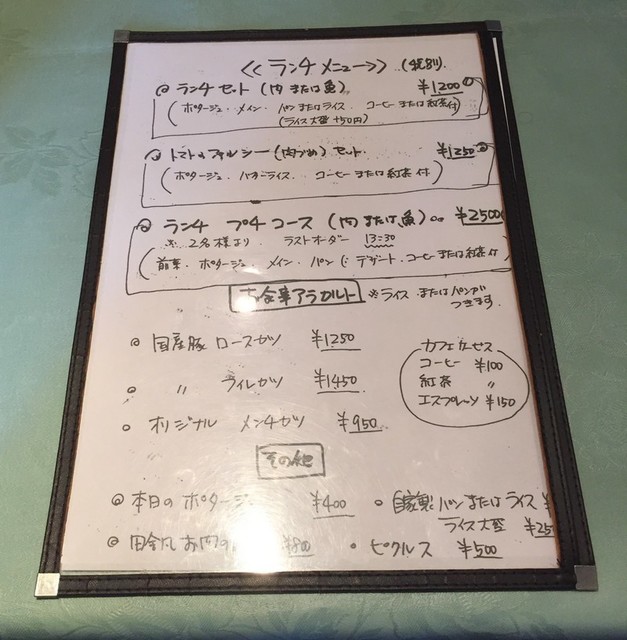 << ランチメニュー>> (税別).
◎ ランチセット (肉または魚). ¥1200
(ポタージュ. メイン. パンまたはライス. コーヒーまたは紅茶付)
(ライス大盛 +50円)
トマトのファルシー(肉づめ)セット. ¥1250
(ポタージュ. パン・ライス. コーヒーまたは紅茶付)
◎ ランチ プチコース (肉または魚). ¥2500
※ 2名様より. ラストオーダー 13:30
(前菜. ポタージュ. メイン. パン. デザート. コーヒーまたは紅茶付
お食事アラカルト ※ライスまたはパンが
つきます.
◎ 国産豚 ロースカツ ¥1250
〃 ヒレカツ ¥1450
オリジナル メンチカツ ¥950
カフェ
コーヒー ¥100
紅茶 〃
エスプレッソ ¥150
その他
◎ 本日の ポタージュ ¥400
• 自家製パンまたはライス ¥
ライス大盛 ¥25
◎ 田舎風お肉の ¥800
• ピクルス ¥500